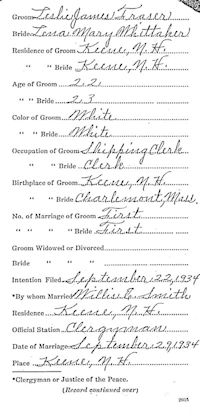 Groom Leslie James Fraser
Bride Lena Mary Whittaker
Residence of Groom Keene, N.H.
" " Bride Keene, N.H.
Age of Groom 22
" " Bride 23
Color of Groom White
" " Bride White
Occupation of Groom Shipping Clerk
" " Bride Clerk
Birthplace of Groom Keene, N.H.
" " Bride Charlemont, Mass.
No. of Marriage of Groom First
" " " " Bride First
Groom Widowed or Divorced
Bride " " "
Intention Filed September 22, 1934
*By whom Married Willis E. Smith
Residence Keene, N.H.
Official Station Clergyman
Date of Marriage September 29, 1934
Place Keene, N.H.
*Clergyman or Justice of the Peace.
(Record continued over)